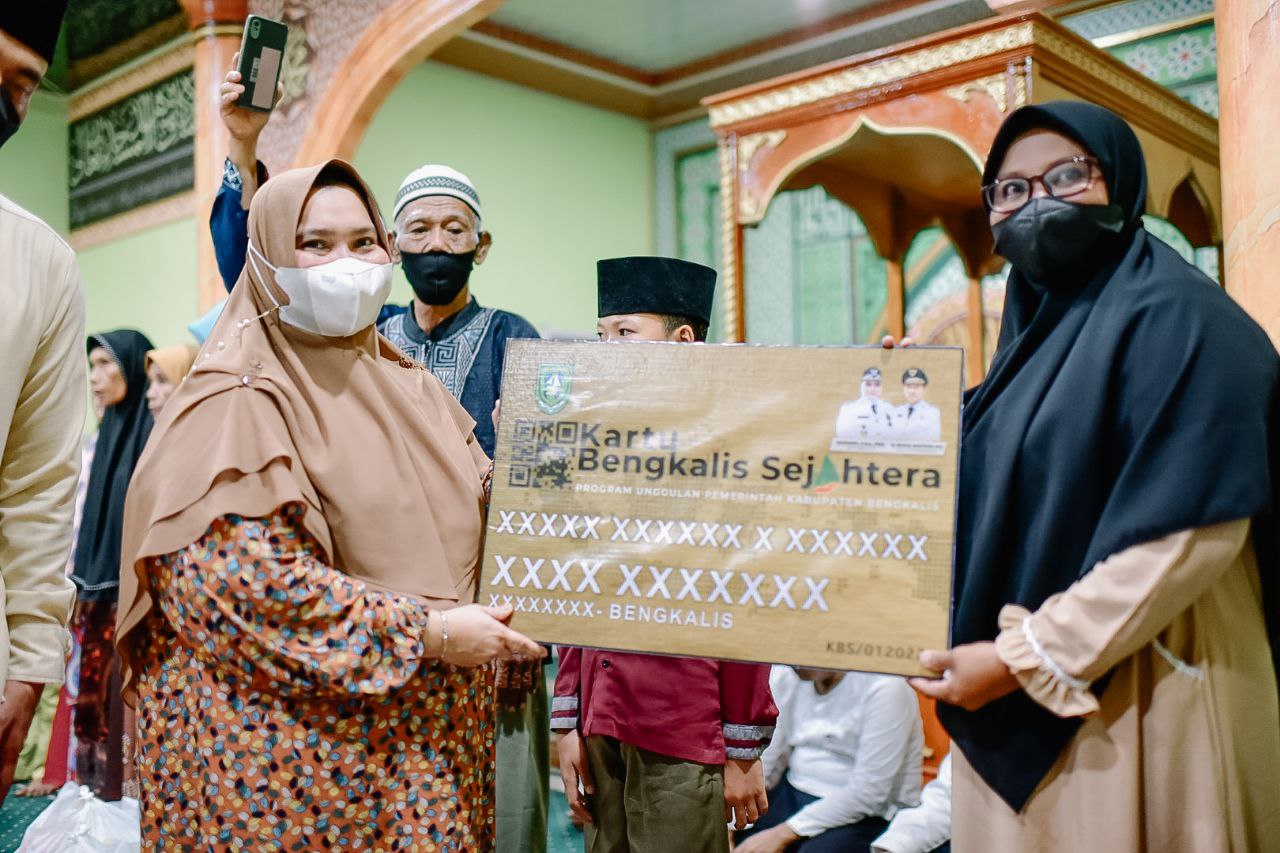 Kartu
Bengkalis Sejahtera
PROGRAM UNGGULAN PEMERINTAH KABUPATEN BENGKALIS
XXXXX XXXXXX X XXXXXX
XXXX XXXXXXX
XXXXXXXX- BENGKALIS
KBS/012022